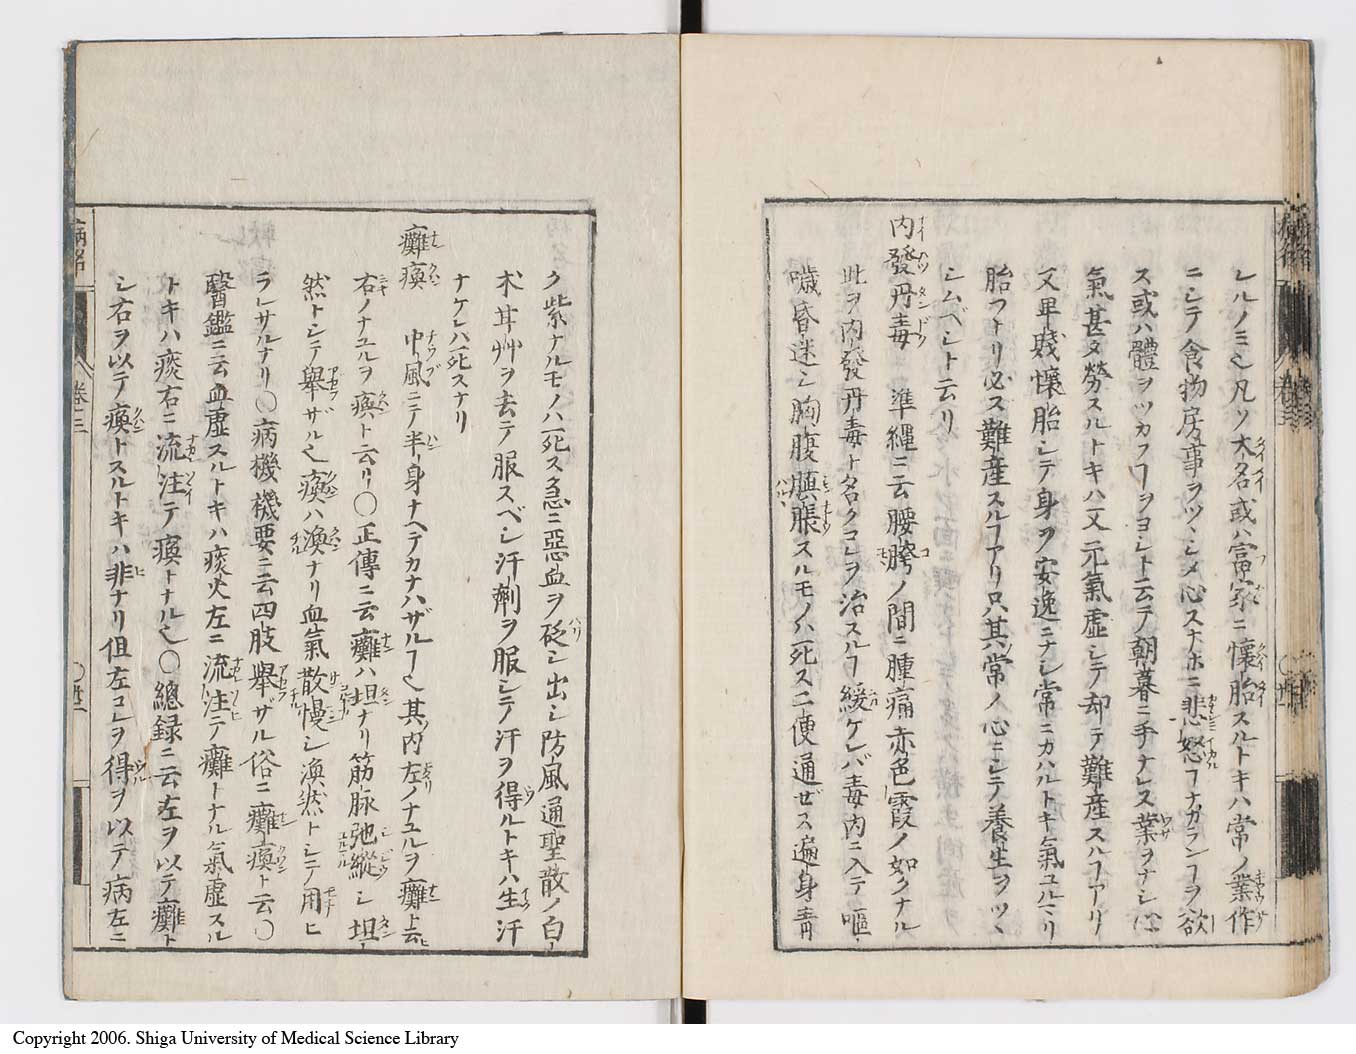 レルノミ也凡ソ大名或ハ富家ニ懐胎スルトキハ常ノ業作
ニシテ食物房事ヲツヽシメ心スナホニ悲怒ヿナカランヿヲ欲
ス或ハ體ヲツカフヿヲヨシト云テ朝暮ニ手ナレス業ヲナシ心
氣甚タ勞スルトキハ又元氣虚シテ却テ難産スルヿアリ
又卑賤懐胎シテ身ヲ安逸ニナシ常ニカハルトキ氣ユルミリ
胎フトリ必ス難産スルヿアリ只其常ノ心ニシテ養生ヲツヽ
シムベシト云リ
内發丹毒 準繩ニ云腰胯ノ間ニ腫痛赤色霞ノ如クナル
此ヲ内發丹毒ト名クコレヲ治スルヿ緩ケレバ毒内ニ入テ嘔
噦昏迷シ胸腹䐜脹スルモノハ死ス二便通ゼス遍身青
ク紫ナルモノハ死ス急ニ惡血ヲ砭シ出シ防風通聖散ノ白
朮耳艸ヲ去テ服スベシ汗劑ヲ服シテ汗ヲ得ルトキハ生汗
ナケレハ死スナリ
癱瘓 中風ニテ半身ナヘテカナハザルヿ也其内左ノナユルヲ癱ト云
右ノナユルヲ瘓ト云リ〇正傳ニ云癱ハ坦ナリ筋脉弛縱シ坦
然トシテ舉ザル也瘓ハ渙ナリ血氣散慢シ渙然トシテ用ヒ
ラレサルナリ〇病機機要ニ云四肢舉ザル俗ニ癱瘓ト云〇
醫鑑ニ云血虚スルトキハ痰火左ニ流注テ癱トナル氣虚スル
トキハ痰右ニ流注テ瘓トナル也〇總録ニ云左ヲ以テ癱ト
シ右ヲ以テ瘓トスルトキハ非ナリ但左コレヲ得ヲ以テ病左ニ
病名
巻三
〇廿二
Copyright 2006. Shiga University of Medical Science Library